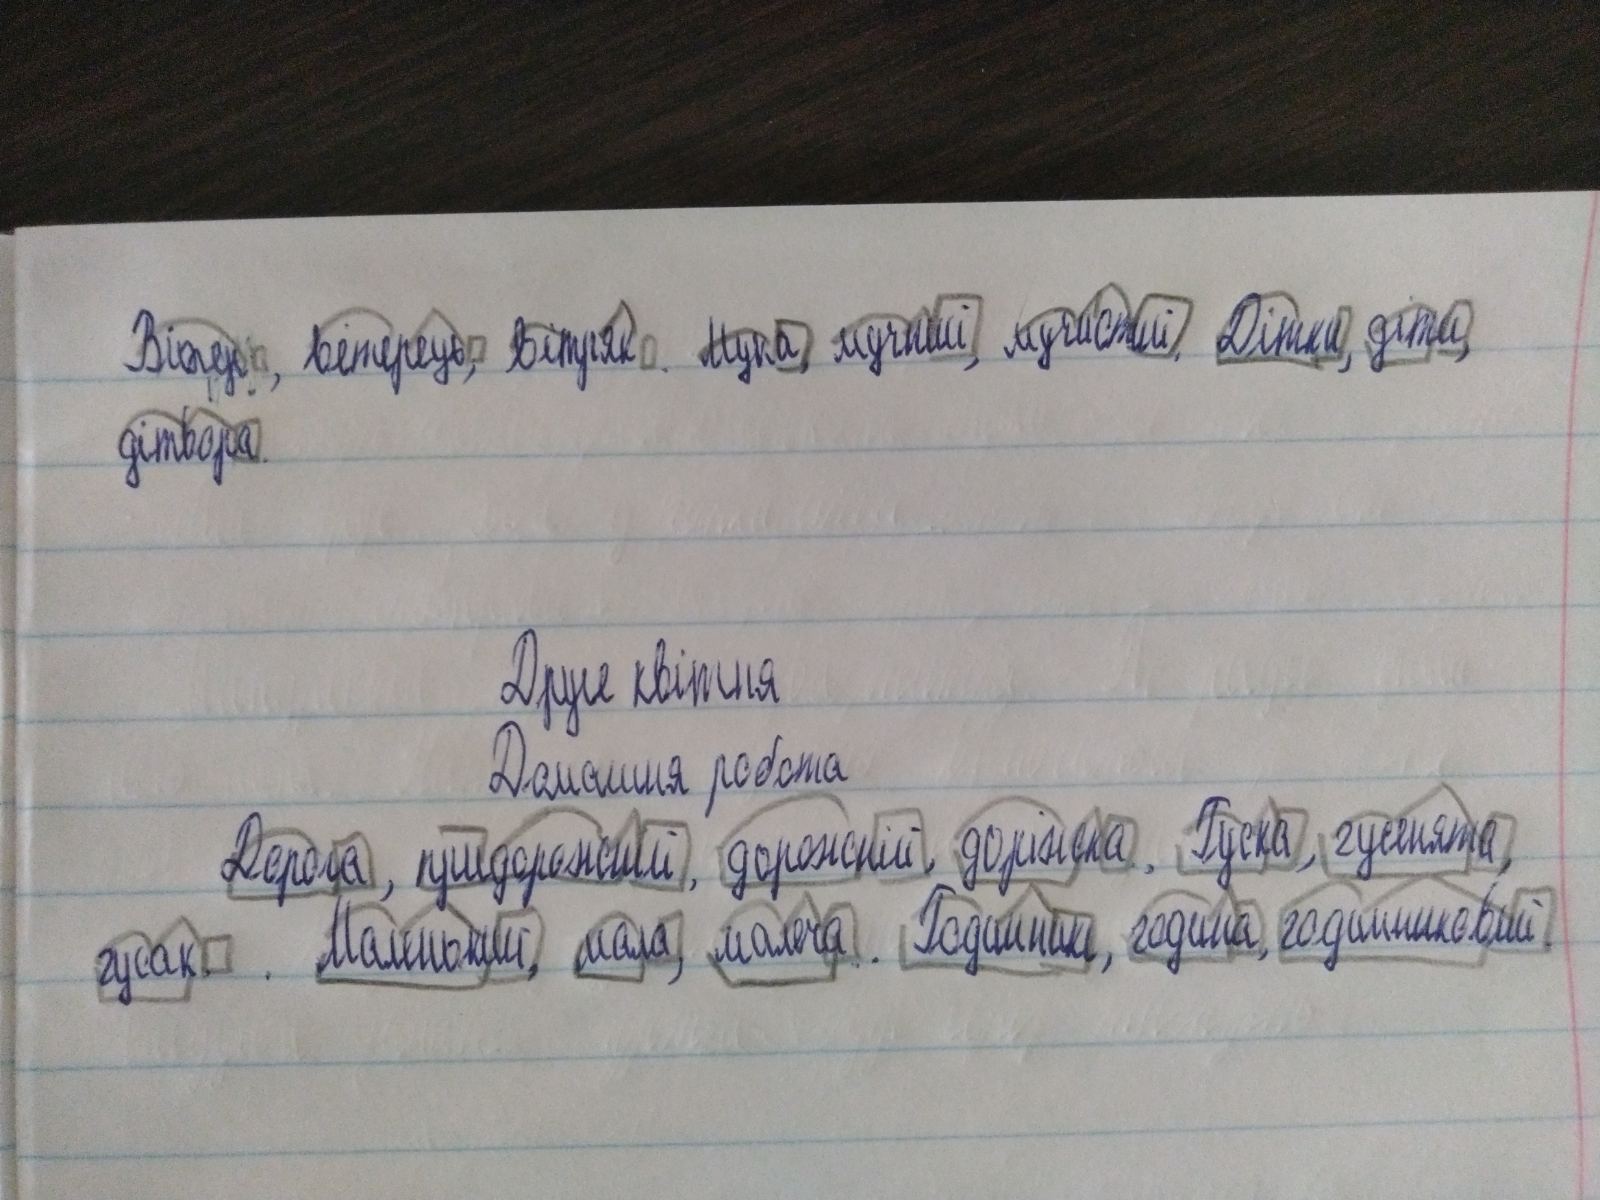 Вітер, вітерець, вітряк. Мука, мучний, мучистий. Дітки, діти,
дітвора.
Друге квітня
Домашня робота
Дорога, придорожній, дорожній, доріжка. Гуска, гусенята,
гусак. Маленький, мала, малеча. Годинник, година, годинниковий.